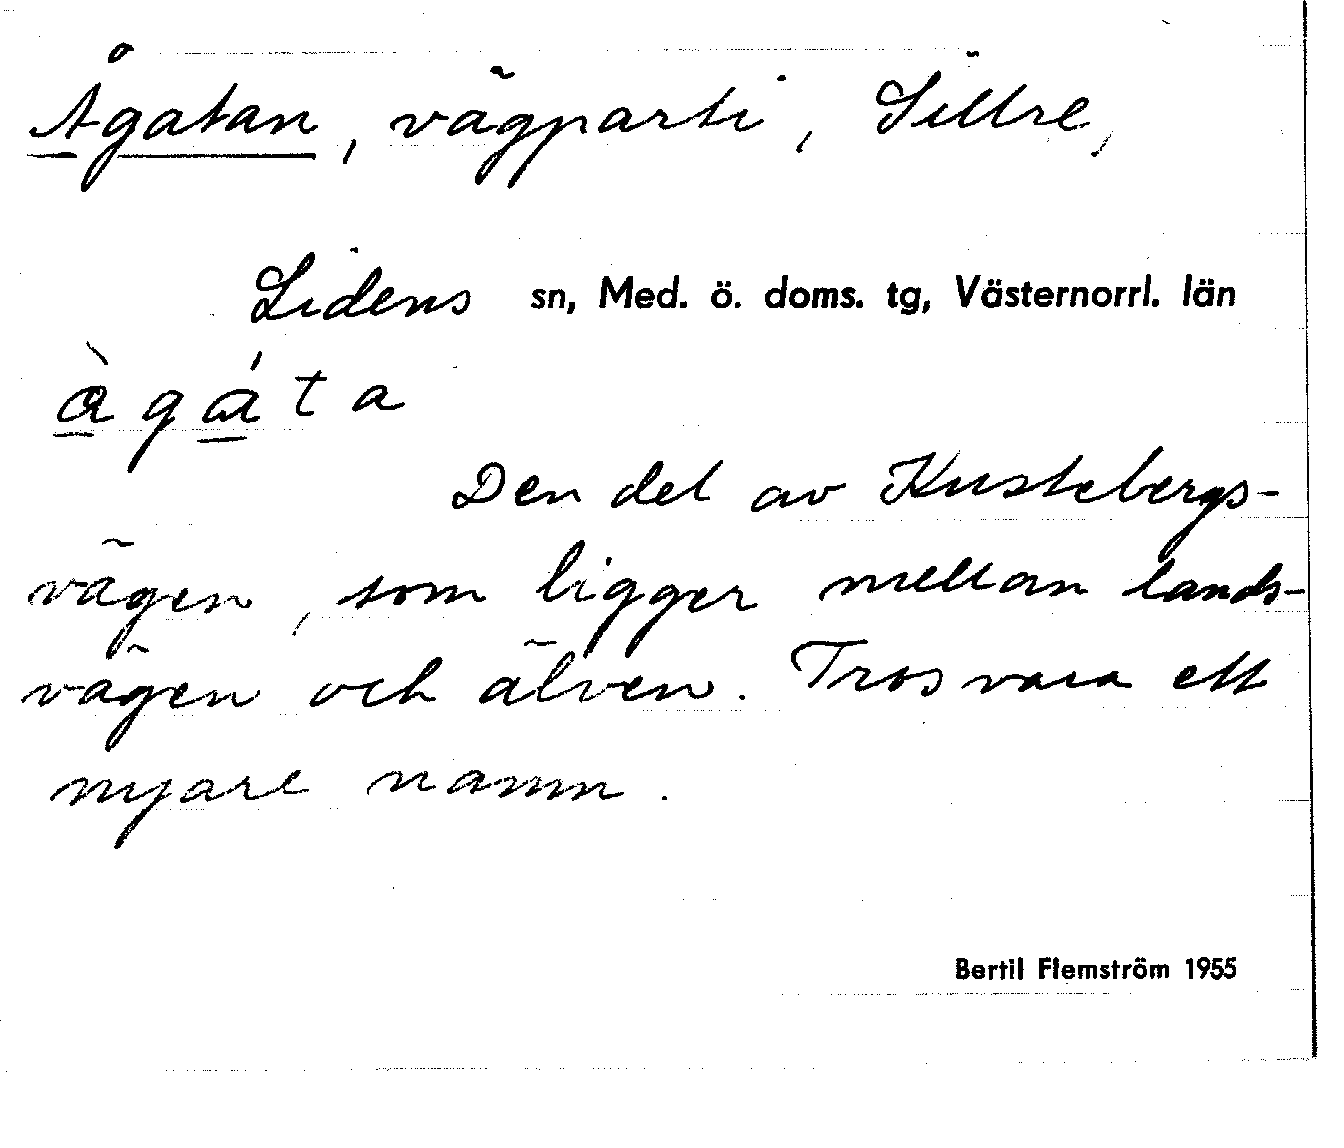 Ågatan, vägparti, Sillre,
Lidens sn, Med. ö. doms. tg, Västernorrl. län
àgáta
Den del av Kustebergs-
vägen, som ligger mellan lands-
vägen och älven. Tros vara ett
nyare namn.
Bertil Flemström 1955